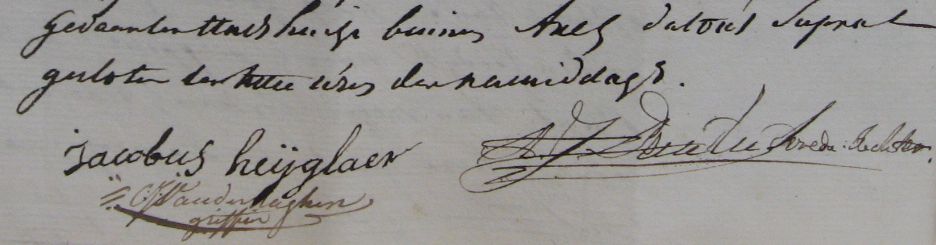 gedaen ten Stadshuise binnen Axel datois Supra
gesloten ten twee ures der namiddags.
Jacobus heijglaer
vrede: Rechter.
C: J: Vanderhaghen
griffier